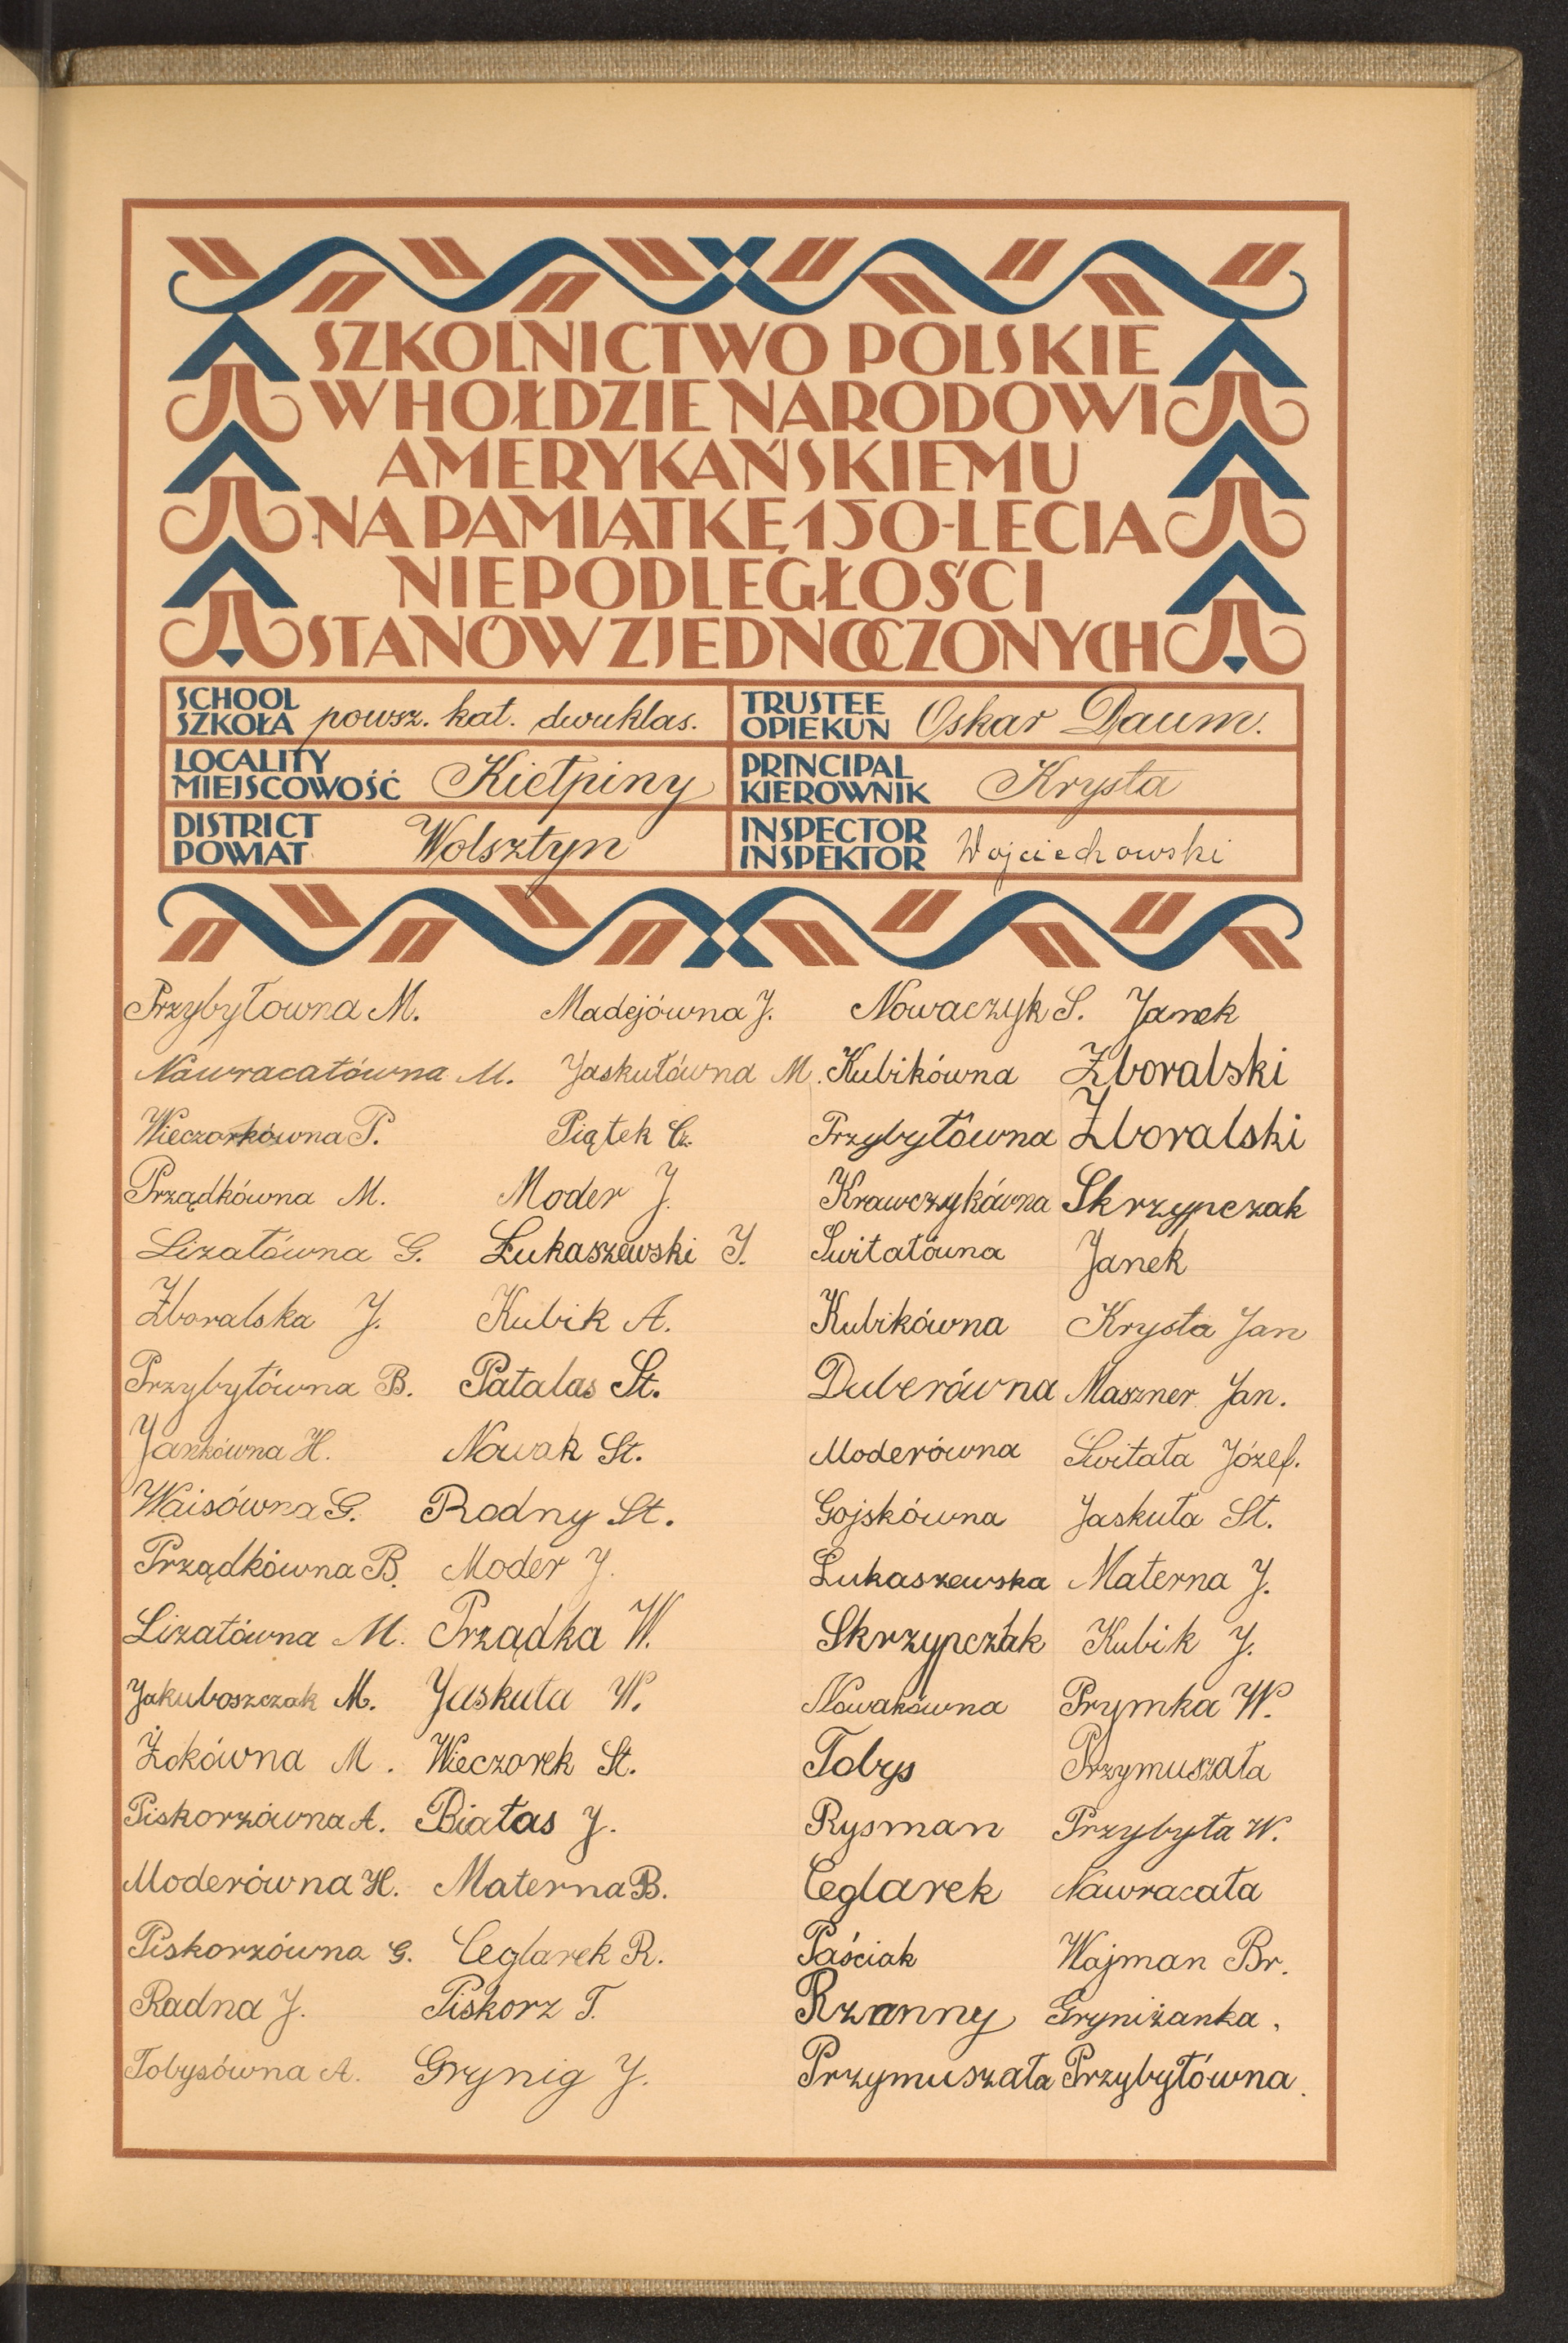 SZKOLNICTWO POLSKIE
W HOŁDZIE NARODOWI
AMERYKAŃSKIEMU
NA PAMIĄTKĘ 150-LECIA
NIEPODLEGŁOŚCI
STANÓW ZJEDNOCZONYCH
SCHOOL SZKOŁA powsz. kat. dwuklas. TRUSTEE OPIEKUN Oskar Daum.
LOCALITY MIEJSCOWOŚĆ Kiełpiny PRINCIPAL KIEROWNIK Krysta
DISTRICT POWIAT Wolsztyn INSPECTOR INSPEKTOR Wojciechowski
Przybyłowna M. Madejówna J. Nowaczyk S. Janek
Nawracałówna M. Jaskułówna M. Kubikówna Zboralski
Wieczorkówna P. Piątek Cz. Przybyłówna Zboralski
Prządkówna M. Moder J. Krawczykówna Skrzypczak
Lizałówna G. Łukaszewski J. Świtałówna Janek
Zboralska J. Kubik A. Kubikówna Krysta Jan
Przybyłówna B. Patalas St. Duberówna Maszner Jan.
Jankówna H. Nowak St. Moderówna Świtała Józef.
Waisówna G. Rodny St. Gojskówna Jaskuła St.
Prządkówna B. Moder J. Łukaszewska Materna J.
Lizałówna M. Prządka W. Skrzypczak Kubik J.
Jakuboszczak M. Jaskuła W. Nowakówna Prymka W.
Żokówna M. Wieczorek St. Tobys Przymuszała
Piskorzówna A. Białas J. Rysman Przybyła W.
Moderówna H. Materna B. Ceglarek Nawracała
Piskorzówna G. Ceglarek R. Paściak Wajman Br.
Radna J. Piskorz T. Rzanny Gryniżanka.
Tobysówna A. Grynig J. Przymuszała Przybyłówna.